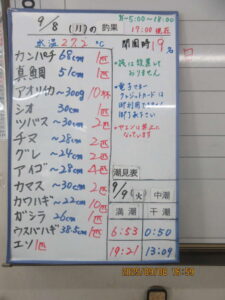 9/8 (月)の釣果
8~5:00~18:00
17:00現在
水温27.2℃
開園時 9名
カンパチ 68cm 1匹
真鯛 51cm 1匹
アオリイカ ~300g 10杯
シオ 30cm 1匹
ツバス ~30cm 2匹
チヌ ~28cm 2匹
グレ ~24cm 2匹
アイゴ ~28cm 4匹
カマス ~30cm 2匹
カワハギ ~22cm 10匹
ガシラ 26cm 1匹
ウスバハギ 38.5cm 1匹
エソ 1匹
*餌は放置して
おりません
*電子マネー
クレジットカードは
御利用できません
御了承下さい
*サビキは禁止に
なっています
潮見表
9/9(火) 中潮
満潮 干潮
6:53 0:50
19:21 13:09
2025/09/08 16:59